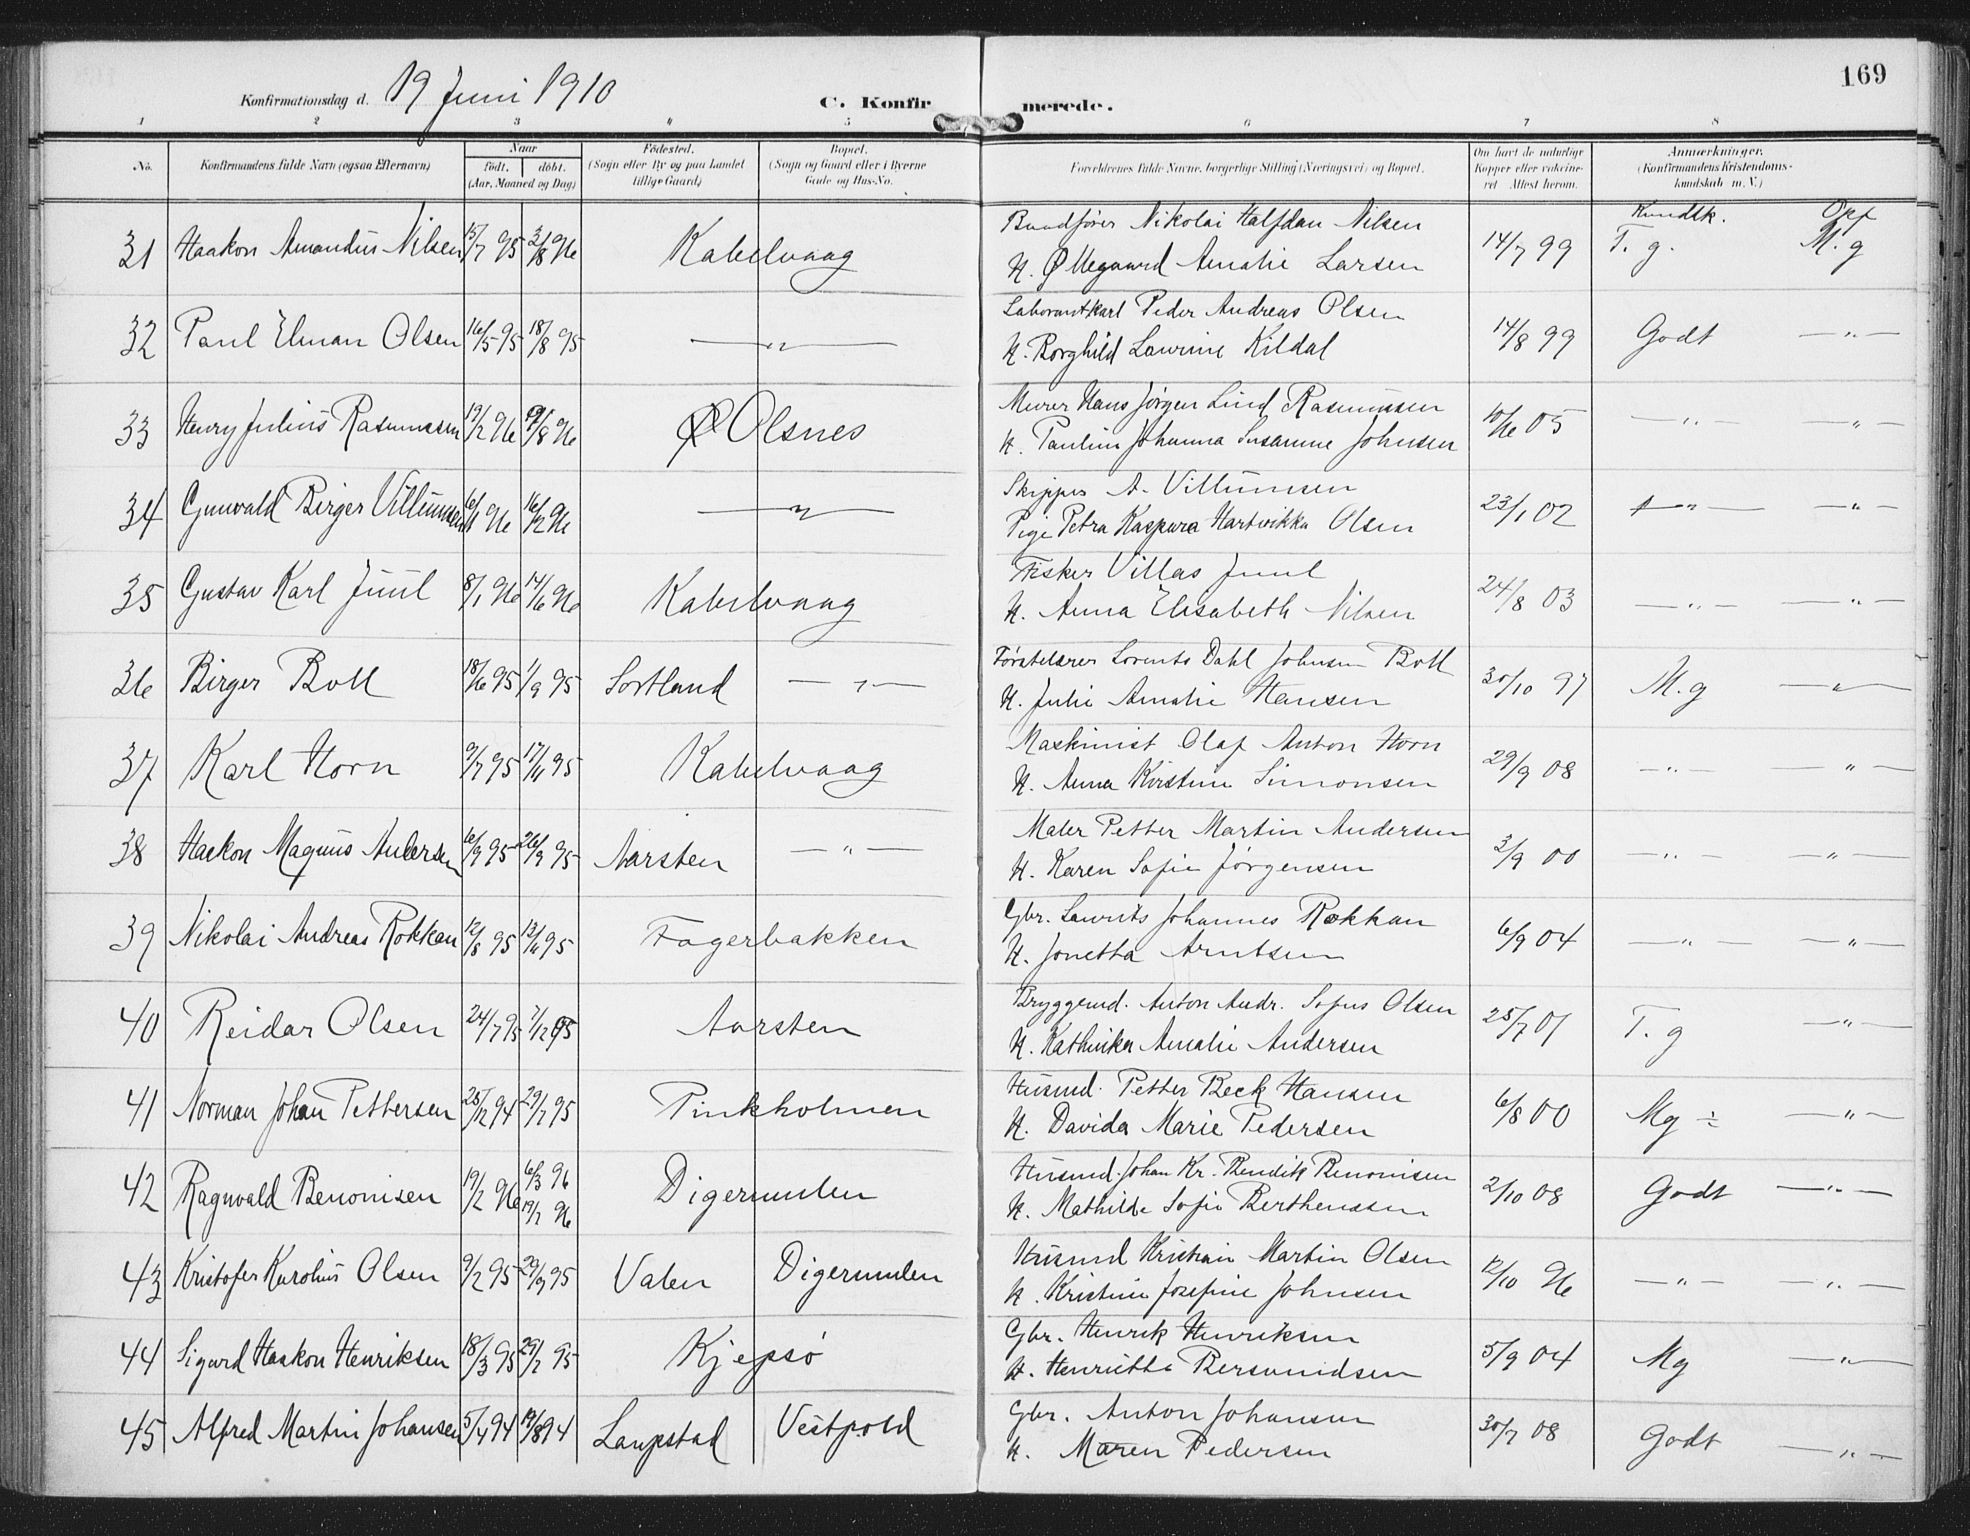 169
Konfirmationsdag d. 19 Juni 1910 C. Konfirmerede.
1 2 3 4 5 6 7 8
No. Konfirmandens fulde Navn (ogsaa Efternavn) Naar født. døbt. (Aar, Maaned og Dag) Fødested. (Sogn eller By og paa Landet tillige Gaard) Bopæl. (Sogn og Gaard eller i Byerne Gade og Hus-No. Forældrenes fulde Navne, borgerlige Stilling (Næringsvei) og Bopæl. Om havt de naturlige Kopper eller vaccineret Attest herom. Anmærkninger. (Konfirmandens Kristendomskundskab m. V.)
Kundsk. Opf
31 Haakon Amandus Nilsen 15/7 95 2/8 96 Kabelvaag Nikolai Halfdan Nilsen 14/7 99 T. g. M. g
H. Øllegaard Amalie Larsen
32 Paul Elman Olsen 16/5 95 18/8 95 —"— Peder Andreas Olsen 14/8 99 Godt —"—
H. Borghild Lawrine Kildal
33 Henry Julius Rasmussen 19/2 96 /8 96 Olsnes Murer Hans Jørgen Lind Rasmussen 10/6 05 —"— —"—
H. Pauline Johanna Susanne Johnsen
34 Gunvald Birger Villumsen 6/1 96 16/2 96 —"— Skipper A. Villumsen 23/1 02 —"— —"—
Pige Petra Kaspara Hartvikka Olsen
35 Gustav Karl Juul 8/1 96 14/6 96 Kabelvaag Fisker Villas Juul 24/8 03 —"— —"—
H. Anna Elisabeth Nilsen
36 Birger Boll 18/6 95 1/9 95 Sortland —"— Førstelærer Lorents Dahl Johnsen Boll 30/10 97 M. g —"—
H. Julie Amalie Hansen
37 Karl Horn 9/7 95 17/11 95 Kabelvaag Maskinist Olaf Anton Horn 29/9 08 —"— —"—
H. Anna Kirstine Simonsen
38 Haakon Magnus Andersen 6/9 95 26/9 95 Aarsten —"— Maler Petter Martin Andersen 3/9 00 —"— —"—
H. Karen Sofie Jørgensen
39 Nikolai Andreas Rokkan 12/8 95 13/11 95 Fagerbakken Gbr. Laurits Johannes Rokkan 6/9 04 —"— —"—
H. Jonetta Arntsen
40 Reidar Olsen 24/7 95 7/12 95 Aarsten Bryggemd. Anton Andr. Sofus Olsen 25/7 01 T. g —"—
H. Kathinka Amalie Andersen
41 Norman Johan Pettersen 28/12 94 29/7 95 Finkholmen Husmd. Petter Beck Hansen 6/8 00 Mg ÷ —"—
H. Davida Marie Pedersen
42 Ragnvald Benonisen 19/2 96 6/3 96 Digermulen Husmd. Johan Kr. Bendik Benonisen 2/10 08 Godt —"—
19/7 96 H. Mathilde Sofie Berthenssen
43 Kristofer Karolius Olsen 9/2 95 29/9 95 Valen Digermulen Husmd Kristian Martin Olsen 12/10 96 —"— —"—
H. Kristine Josefine Johnsen
44 Sigurd Haakon Henriksen 18/3 95 29/7 95 Kjepsø Gbr. Henrik Henriksen 5/9 04 Mg —"—
H. Henriette Bersvendsen
45 Alfred Martin Johansen 5/4 94 19/8 94 Laupstad Vestpold Gbr. Anton Johansen 30/7 08 Godt —"—
H. Maren Pedersen